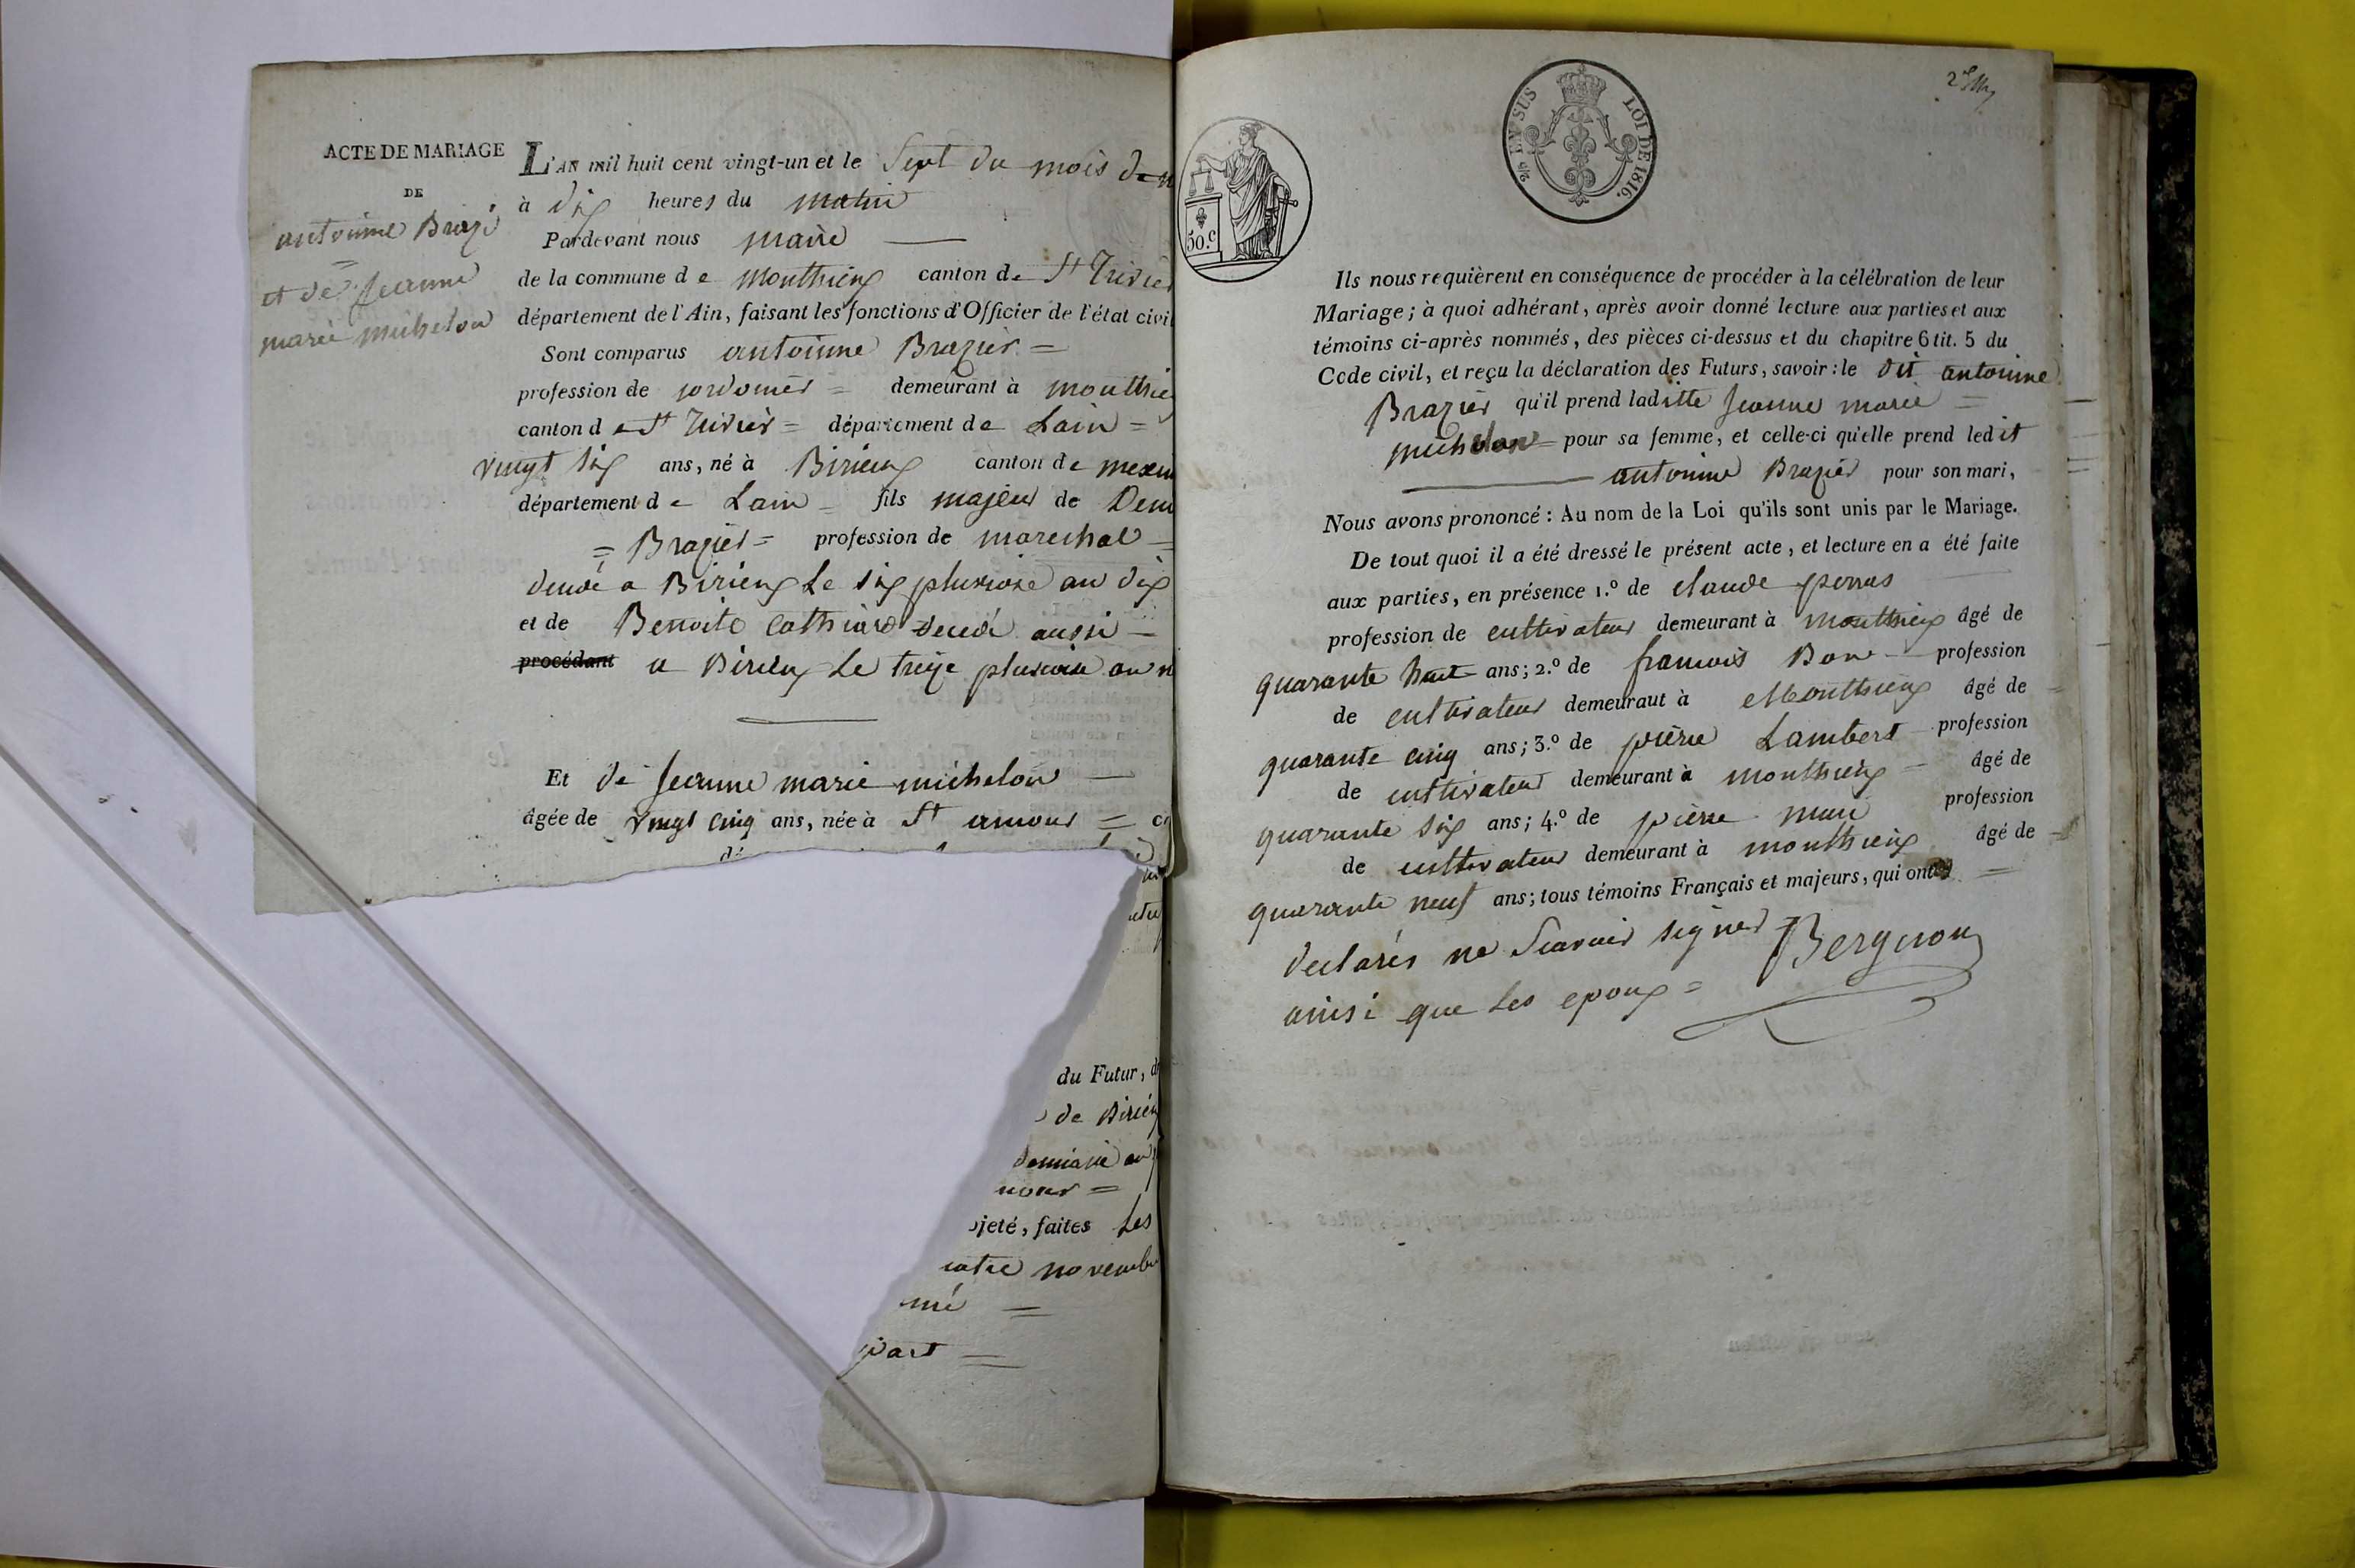 ACTE DE MARIAGE
DE
antoinne Brazi
et de jeanne
marie michelon
L'AN mil huit cent vingt-un et le Sept du mois de
à dix heures du matin
Pardevant nous maire
de la commune de Monthieux canton de St Trivier
département de l'Ain, faisant les fonctions d'Officier de l'état civil
Sont comparus antoinne Brazier =
profession de demeurant à monthieu
canton de St Trivier = département de Lain =
vingt six ans, né à Birieux canton de mexim
département de Lain = fils majeur de Deni
= Brazier = profession de marechal =
decdé a Birieux Le six pluviose an dix
et de Benoite Cathiard decdé aussi =
procédant a Birieux Le treize pluviose an n
Et de jeanne marie michelon
âgée de vingt cinq ans, née à St amour =
utre
du Futur, d
de Birieux
an
mour =
ojeté, faites Les
uatre novembre
mé =
part =
50.c
EN SUS
LOI DE 1816.
Ils nous requièrent en conséquence de procéder à la célébration de leur
Mariage; à quoi adhérant, après avoir donné lecture aux parties et aux
témoins ci-après nommés, des pièces ci-dessus et du chapitre 6 tit. 5 du
Code civil, et reçu la déclaration des Futurs, savoir: le dit antoinne
Brazier qu'il prend laditte jeanne marie =
michelon pour sa femme, et celle-ci qu'elle prend ledit
antoinne Brazier pour son mari,
Nous avons prononcé: Au nom de la Loi qu'ils sont unis par le Mariage.
De tout quoi il a été dressé le présent acte, et lecture en a été faite
aux parties, en présence 1.º de claude perras
profession de cultivateur demeurant à Monthieux âgé de
quarante huit ans; 2.º de francois Bon profession
de cultivateur demeurant à Monthieux âgé de
quarante cinq ans; 3.º de pierre Lambert profession
de cultivateur demeurant à monthieux âgé de
quarante six ans; 4.º de pierre profession
de cultivateur demeurant à monthieux âgé de
quarante neuf ans; tous témoins Français et majeurs, qui ont =
declarés ne Scavoir signer Bergnon
ainsi que Les epoux =